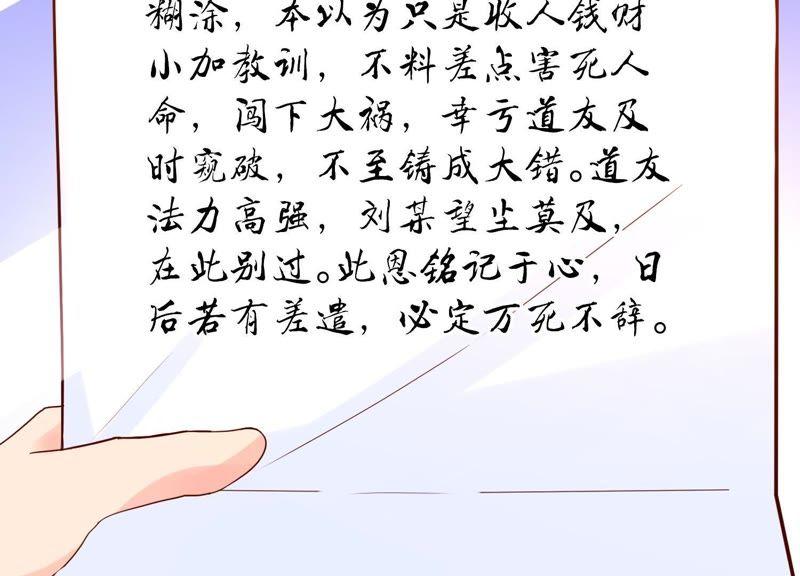 糊涂，本以为只是收人钱财
小加教训，不料差点害死人
命，闯下大祸，幸亏道友及
时窥破，不至铸成大错。道友
法力高强，刘某望尘莫及，
在此别过。此恩铭记于心，日
后若有差遣，必定万死不辞。